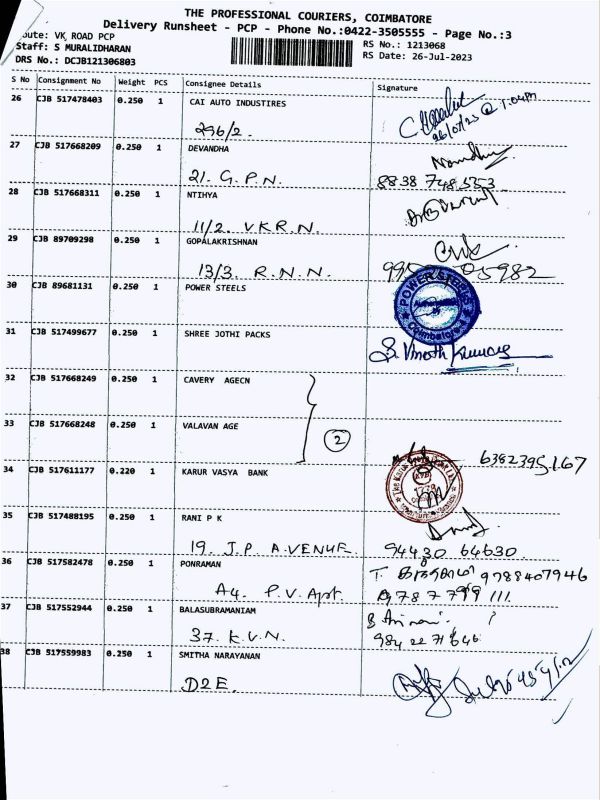 THE PROFESSIONAL COURIERS, COIMBATORE
Delivery Runsheet - PCP - Phone No.:0422-3505555 - Page No.:3
oute: VK ROAD PCP
Staff: S MURALIDHARAN
DRS No.: DCJB121306803
RS No.: 1213068
RS Date: 26-Jul-2023
S No Consignment No Weight PCS Consignee Details Signature
26 CJB 517478403 0.250 1 CAI AUTO INDUSTIRES
296/2.
26/07/23 @ 1:04pm
27 CJB 517668209 0.250 1 DEVANDHA
21. G.P.N. 8838 748 5353
28 CJB 517668311 0.250 1 NTIHYA
11/2. V.K.R.N.
29 CJB 89709298 0.250 1 GOPALAKRISHNAN
13/3. R.N.N.
30 CJB 89681131 0.250 1 POWER STEELS
POWER STEELS
Coimbatore
31 CJB 517499677 0.250 1 SHREE JOTHI PACKS
S. Vinoth Kumar
32 CJB 517668249 0.250 1 CAVERY AGECN
33 CJB 517668248 0.250 1 VALAVAN AGE
2
6382395167
34 CJB 517611177 0.220 1 KARUR VASYA BANK
35 CJB 517488195 0.250 1 RANI P K
19. J.P AVENUE 94430 64630
36 CJB 517582478 0.250 1 PONRAMAN
9788407946
A4. P.V. Apt. 787 799 111
37 CJB 517552944 0.250 1 BALASUBRAMANIAM
37. K.V.N. 984 22 71646
38 CJB 517559983 0.250 1 SMITHA NARAYANAN
D2E.